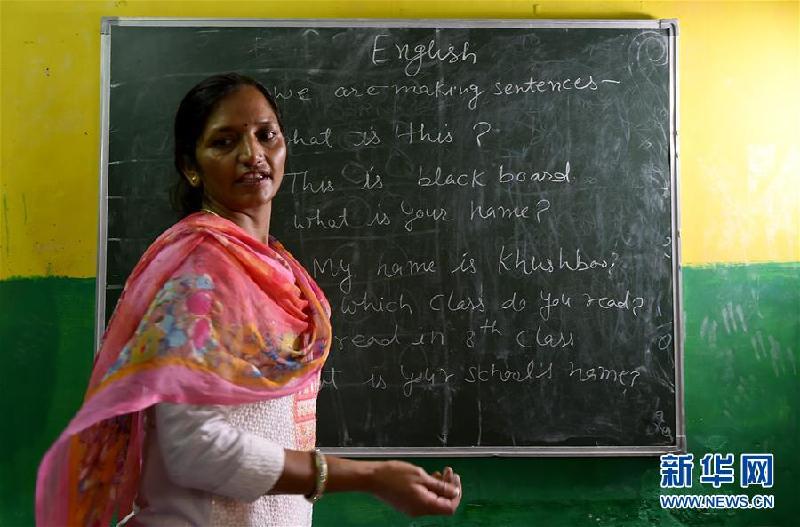 English
we are making sentences—
what is this?
This is black board.
what is your name?
My name is Khushboo?
which class do you read?
read in 8th class
is your school's name?
新华网
WWW.NEWS.CN